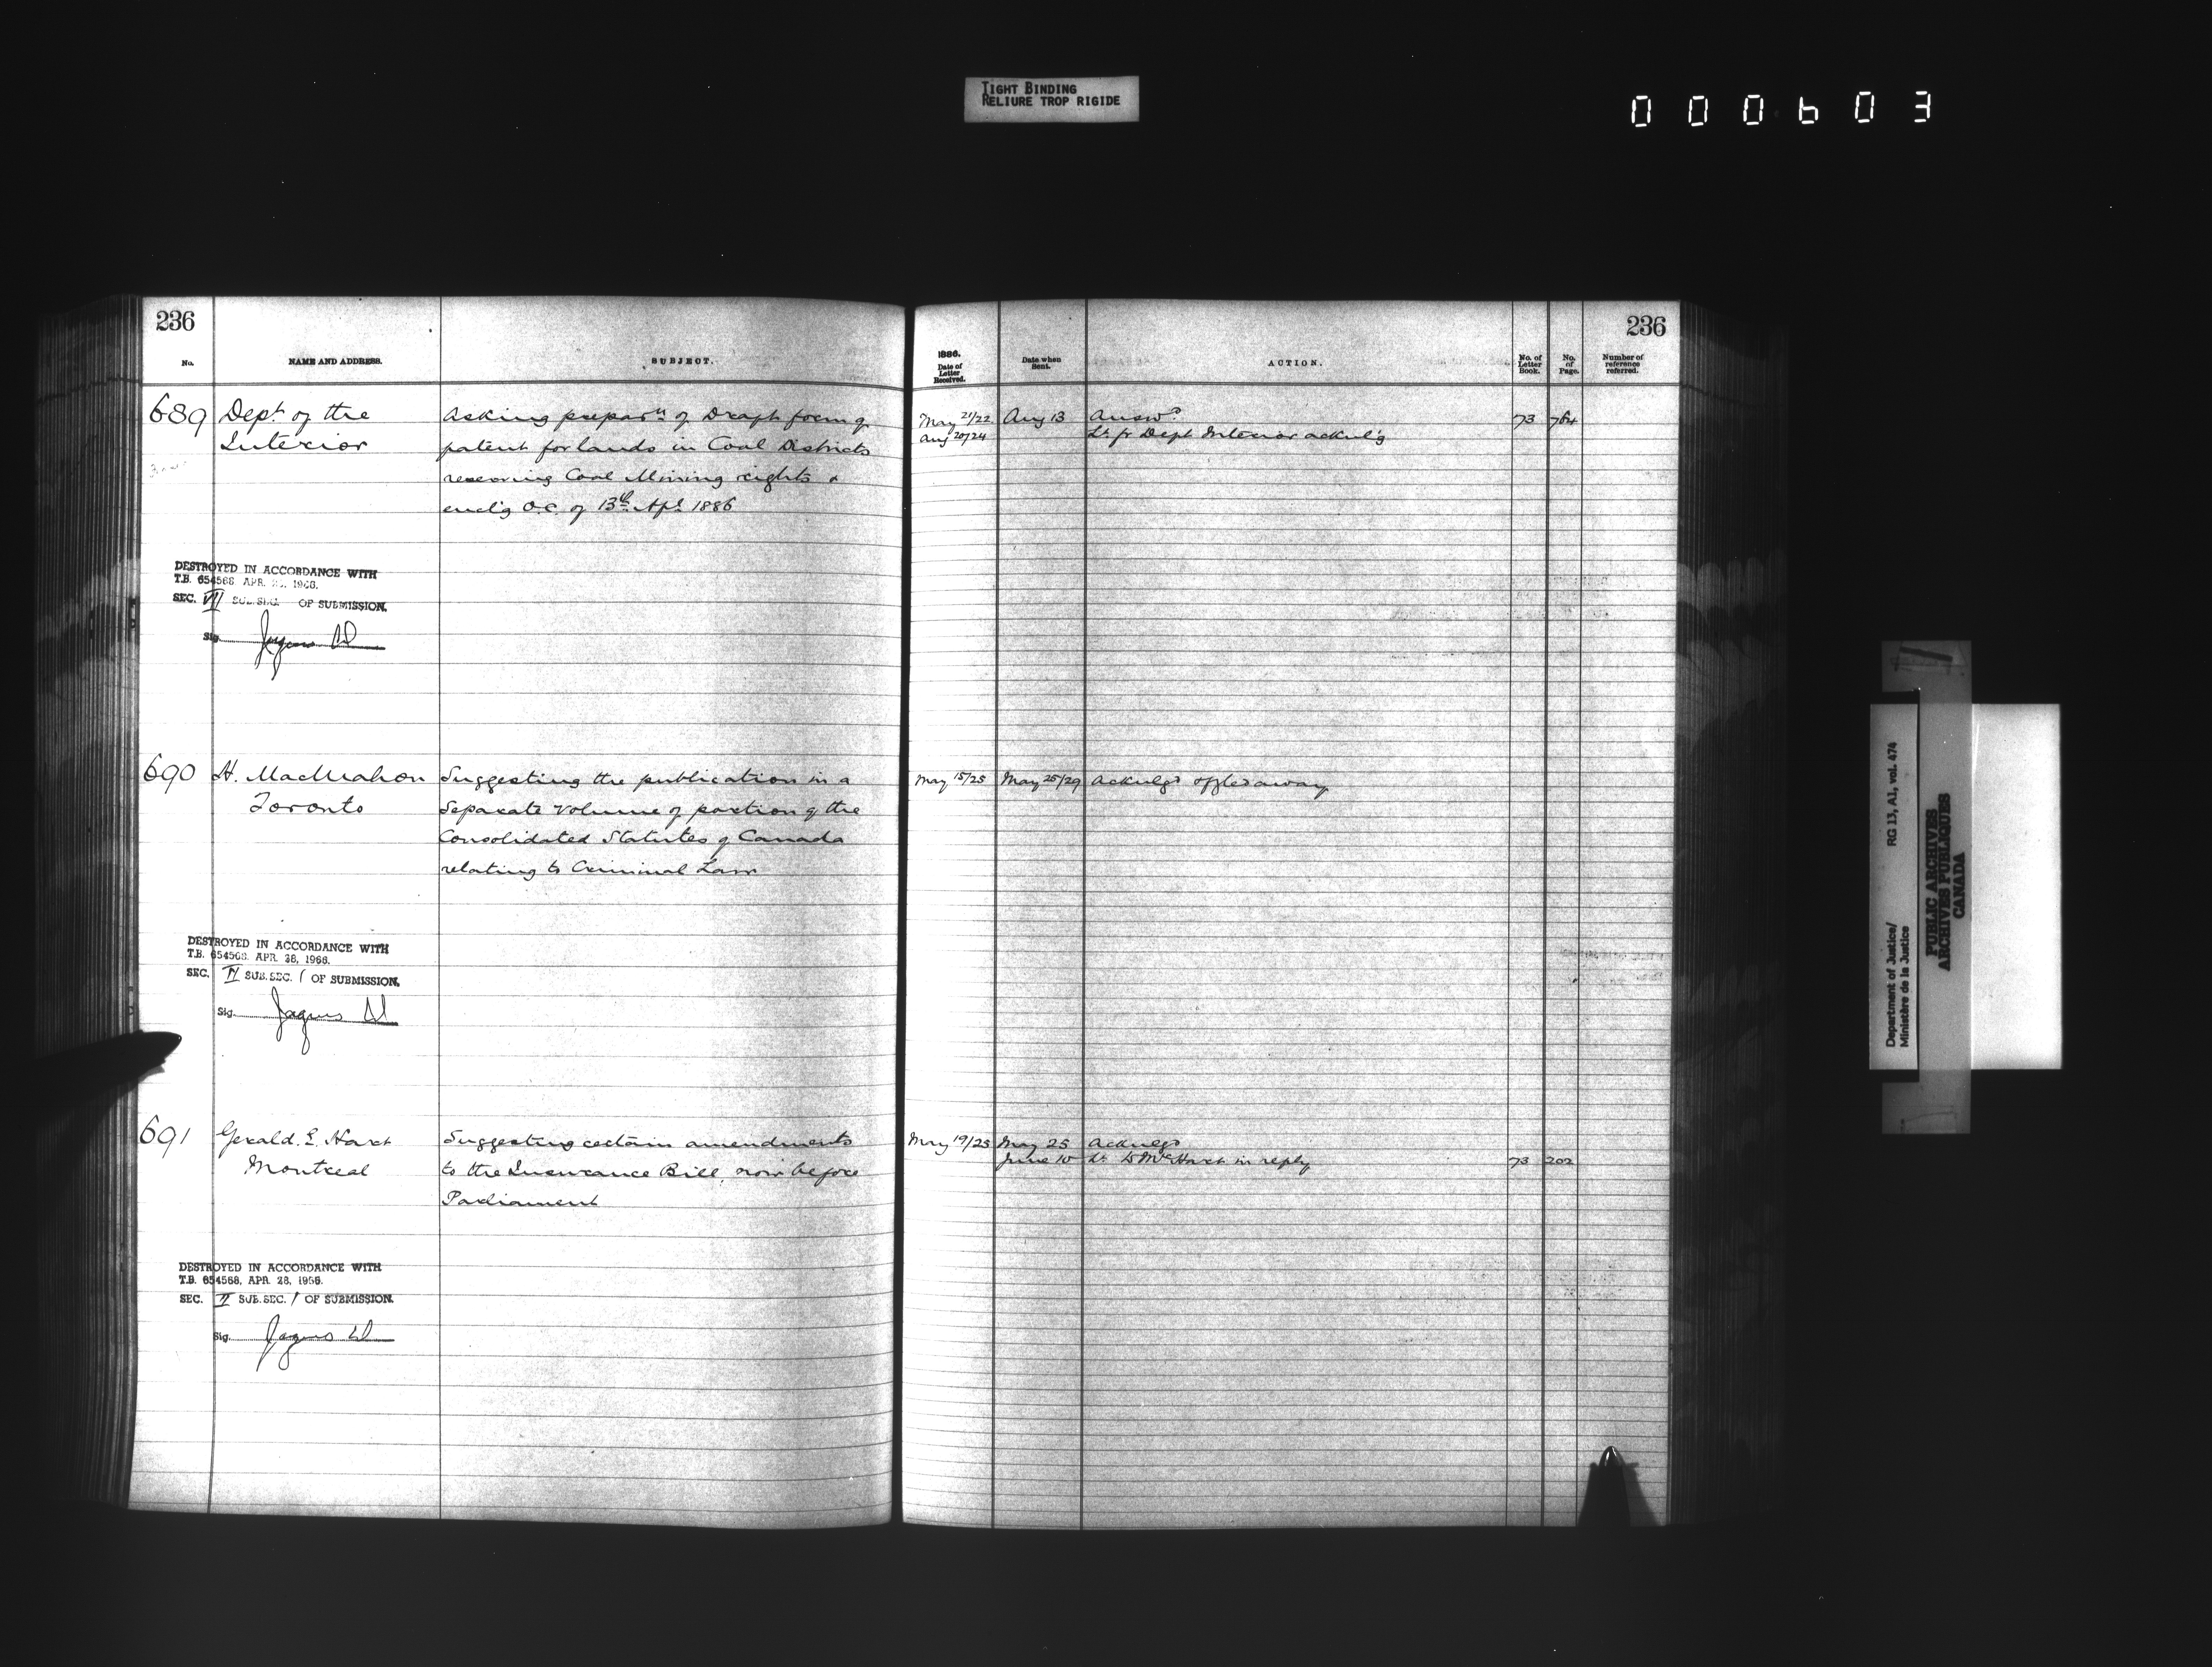 TIGHT BINDING
RELIURE TROP RIGIDE
000603
236
No.
NAME AND ADDRESS.
SUBJECT.
689
Dept of the
Interior
Asking preparn of Draft form of
patent for lands in Coal Districts
reserving Coal Mining rights &
encl'g O.C. of 13th Apl 1886
DESTROYED IN ACCORDANCE WITH
T.B. 654568 APR. 1966.
SEC. VII SUB.SEC. OF SUBMISSION.
Sig.
690
H. MacMahon
Toronto
Suggesting the publication in a
Separate Volume of portion of the
Consolidated Statutes of Canada
relating to Criminal Law
DESTROYED IN ACCORDANCE WITH
T.B. 654568 APR. 28, 1966.
SEC. II SUB.SEC. 1 OF SUBMISSION.
Sig.
691
Gerald. E. Hart
Montreal
Suggesting certain amendments
to the Insurance Bill, now before
Parliament
DESTROYED IN ACCORDANCE WITH
T.B. 654568, APR. 28, 1966.
SEC. II SUB.SEC. 1 OF SUBMISSION.
Sig.
236
1886.
Date of
Letter
Received.
Date when
Sent.
ACTION.
No. of
Letter
Book.
No.
of
Page.
Number of
reference
referred.
May 21/22 Aug 13 Answd 73 764
Aug 20/24 Lr fr Dept Interior acknl'g
May 15/25 May 25/29 Acknlgd
May 19/25 May 25 Acknlgd
June 10 Lr to Mr Hart in reply 73 202
Department of Justice/ RG 13, A1, vol. 474
Ministère de la Justice
PUBLIC ARCHIVES
ARCHIVES PUBLIQUES
CANADA